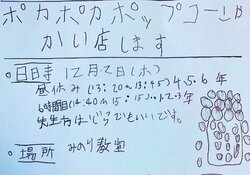 ポカポカポップコーン
かい店します
日時 12月2日(木)
昼休み(13:20〜13:45)4.5.6年
6時間目(14:40〜15:15)1.2.3年
先生方はいつでもいいです。
場所 みのり教室